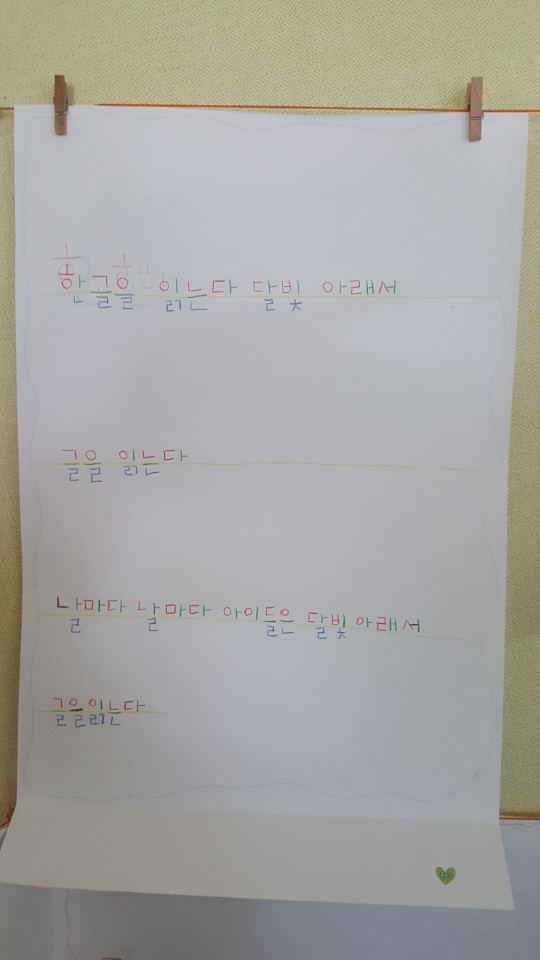 한글을 읽는다 달빛 아래서
글을 읽는다
날마다 날마다 아이들은 달빛 아래서
글을읽는다